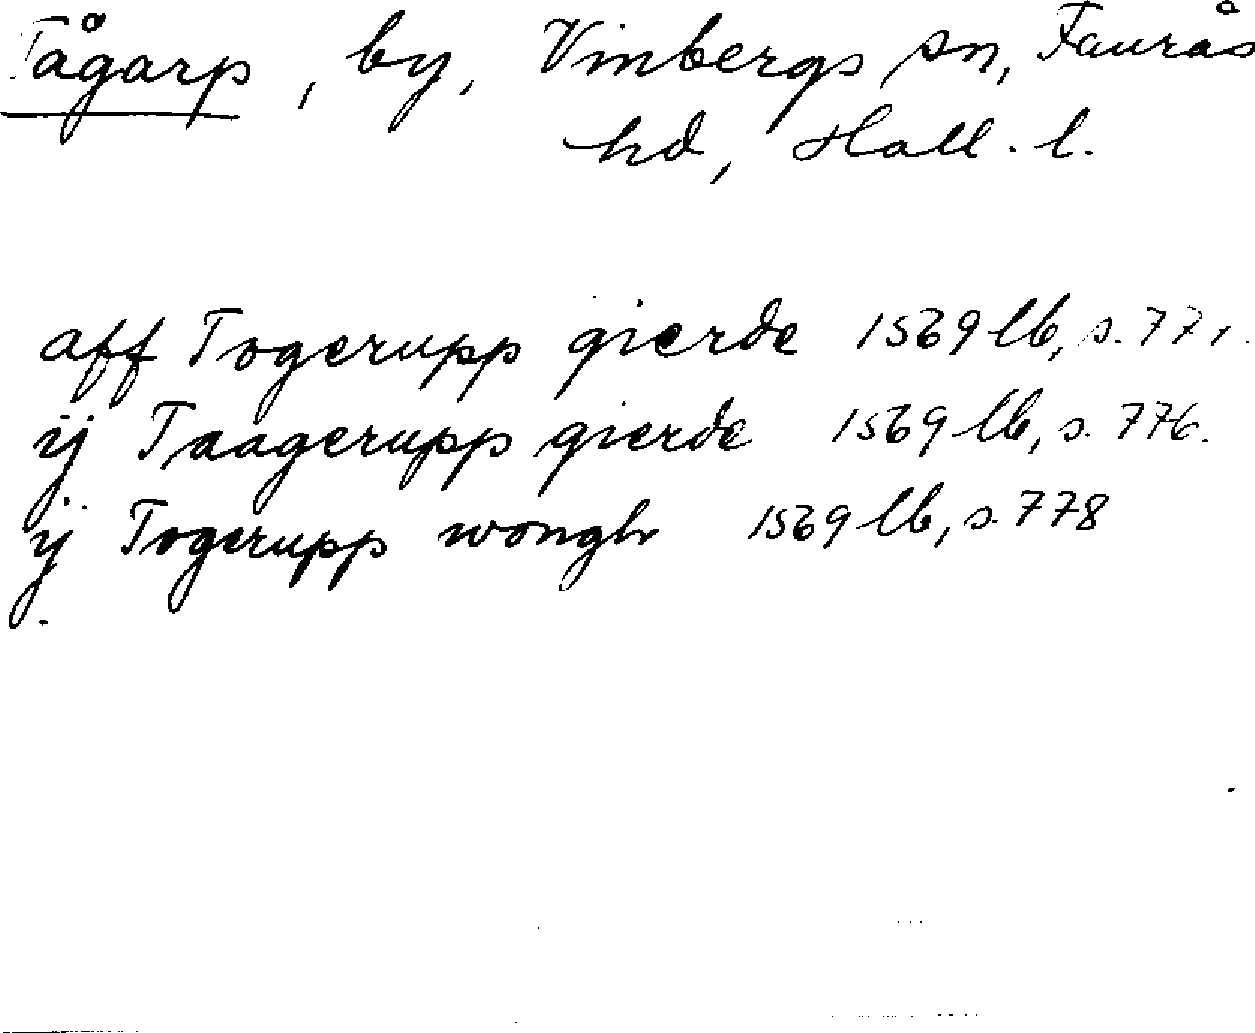 Tågarp, by, Vinbergs sn, Faurås
hd, Hall. l.
aff Togerupp gierde 1569 lb, s. 771.
ij Taagerupp gierde 1569 lb, s. 776.
ij Togerupp wongh 1569 lb, s. 778